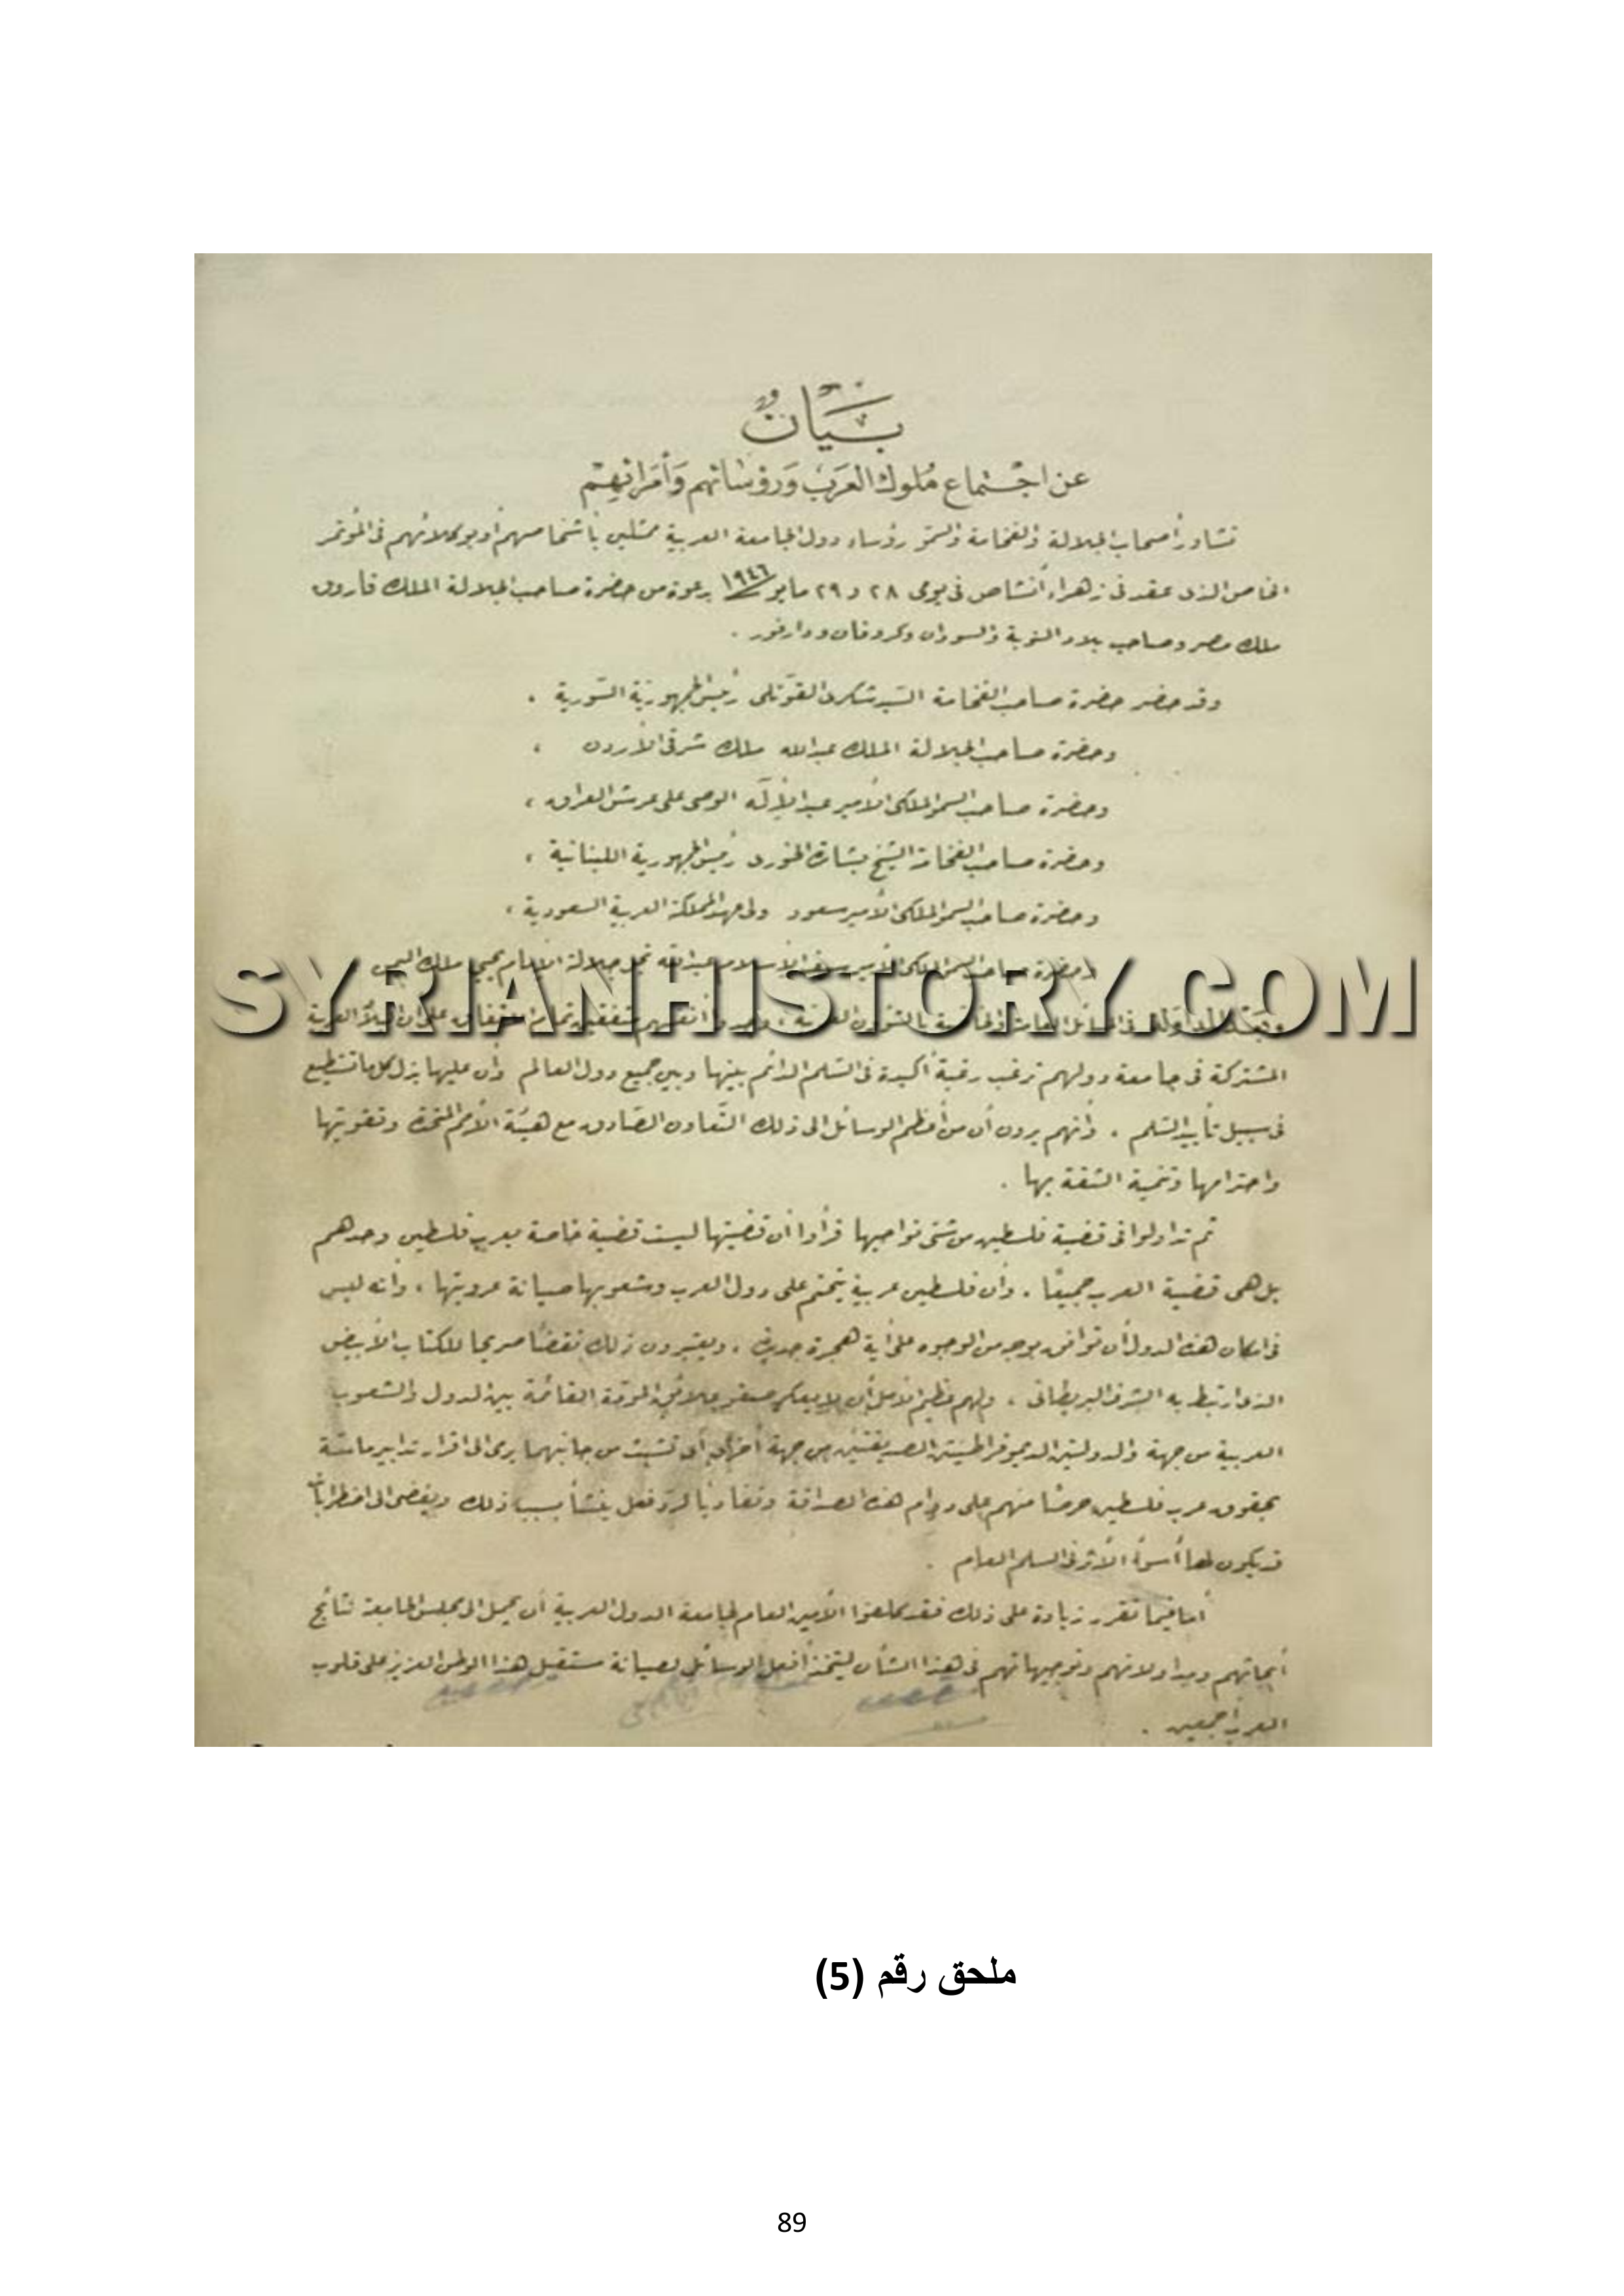 بَيَانٌ
عن اجْتماع مُلوك العَرَب وَرؤسَائهم وَأمَرائهِمْ
تشاور أصحاب الجلالة والفخامة والسمو رؤساء دول الجامعة العربية ممثلين بأشخاصهم أو بوكلائهم فى المؤتمر
الخاص الذى عقد فى زهراء أنشاص فى يومى ٢٨ و ٢٩ مايو ١٩٤٦ بدعوة من حضرة صاحب الجلالة الملك فاروق
ملك مصر وصاحب بلاد النوبة والسودان وكردفان ودارفور .
وقد حضر حضرة صاحب الفخامة السيد شكرى القوتلى رئيس الجمهورية السورية .
وحضرة صاحب الجلالة الملك عبد الله ملك شرقى الأردن ،
وحضرة صاحب السمو الملكى الأمير عبد الإله الوصى على عرش العراق ،
وحضرة صاحب الفخامة الشيخ بشارة الخورى رئيس الجمهورية اللبنانية ،
وحضرة صاحب السمو الملكى الأمير سعود ولى عهد المملكة العربية السعودية ،
وحضرة صاحب السمو الملكى الأمير سيف الإسلام عبد الله نجل جلالة الإمام يحيى ملك اليمن
SYRIANHISTORY.COM
فى المسائل العامة والخاصة بالشؤون العربية ، متفقين تمام على أن البلاد العربية
المشتركة فى جامعة دولهم ترغب رغبة أكيدة فى السلم الدائم بينها وبين جميع دول العالم وأن عليها بذل كل ما تستطيع
فى سبيل تأييد السلم . وأنهم يرون أن من أعظم الوسائل الى ذلك التعاون الصادق مع هيئة الأمم المتحدة وتقويتها
واحترامها وتنمية الثقة بها .
ثم تداولوا فى قضية فلسطين من شتى نواحيها فرأوا أن قضيتها ليست قضية خاصة بعرب فلسطين وحدهم
بل هى قضية العرب جميعًا . وأن فلسطين عربية يتحتم على دول العرب وشعوبها صيانة عروبتها ، وأنه ليس
فى امكان هذه الدول أن توافق بوجه من الوجوه على أية هجرة جديدة ، ويعتبرون ذلك نقضًا صريحا للكتاب الأبيض
الذى ارتبط به الشرف البريطانى . ولهم عظيم الأمل أن لا يعكر صفو علائق المودة القائمة بين الدول والشعوب
العربية من جهة والدولتين الديموقراطيتين الصديقتين من جهة أخرى أى تشبث من جانبهما يرمى الى اقرار تدابير ماسة
بحقوق عرب فلسطين حرصًا منهم على دوام هذه الصداقة وتفاديًا لرد فعل ينشأ بسبب ذلك ويفضى الى اضطرابات
قد يكون لها أسوأ الأثر فى السلم العام .
أما فيما تقرر زيادة على ذلك فقد كلفوا الأمين العام لجامعة الدول العربية أن يحيل الى مجلس الجامعة نتائج
أبحاثهم ومداولاتهم وتوجيهاتهم فى هذا الشأن ليتخذ أفعل الوسائل لصيانة مستقبل هذا الوطن العزيز على قلوب
العرب أجمعين .
ملحق رقم (5)
89